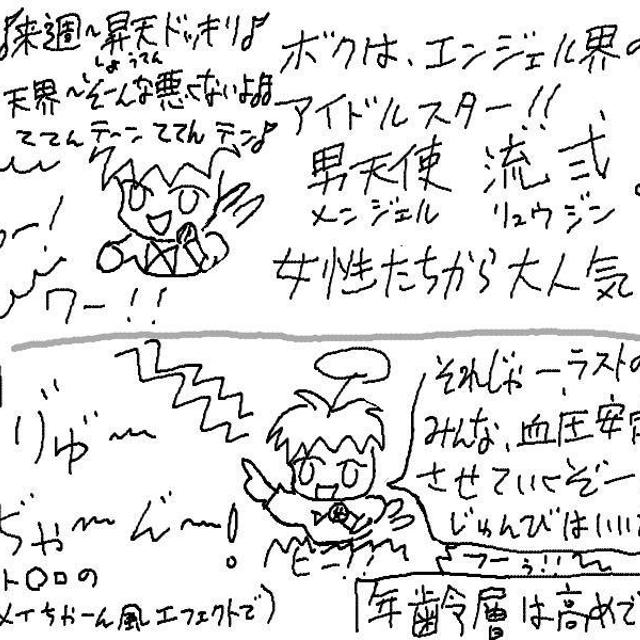 ♪来週〜昇天ドッキリ♪
しょうてん
天界〜そーんな悪くないよ
ててんテーンててんテン♪
ー!
ワー!!
ボクは、エンジェル界の
アイドルスター!!
男天使 流弐
メンジェル リュウジン
女性たちから大人気
りゅ〜
ぢゃ〜ん〜!
ト〇ロの
メイちゃーん風エフェクトで)
それじゃーラストの
みんな、血圧安定
させていくぞー
じゅんびはいい
ヒー!!
フーぅ!!
年齢層は高めで